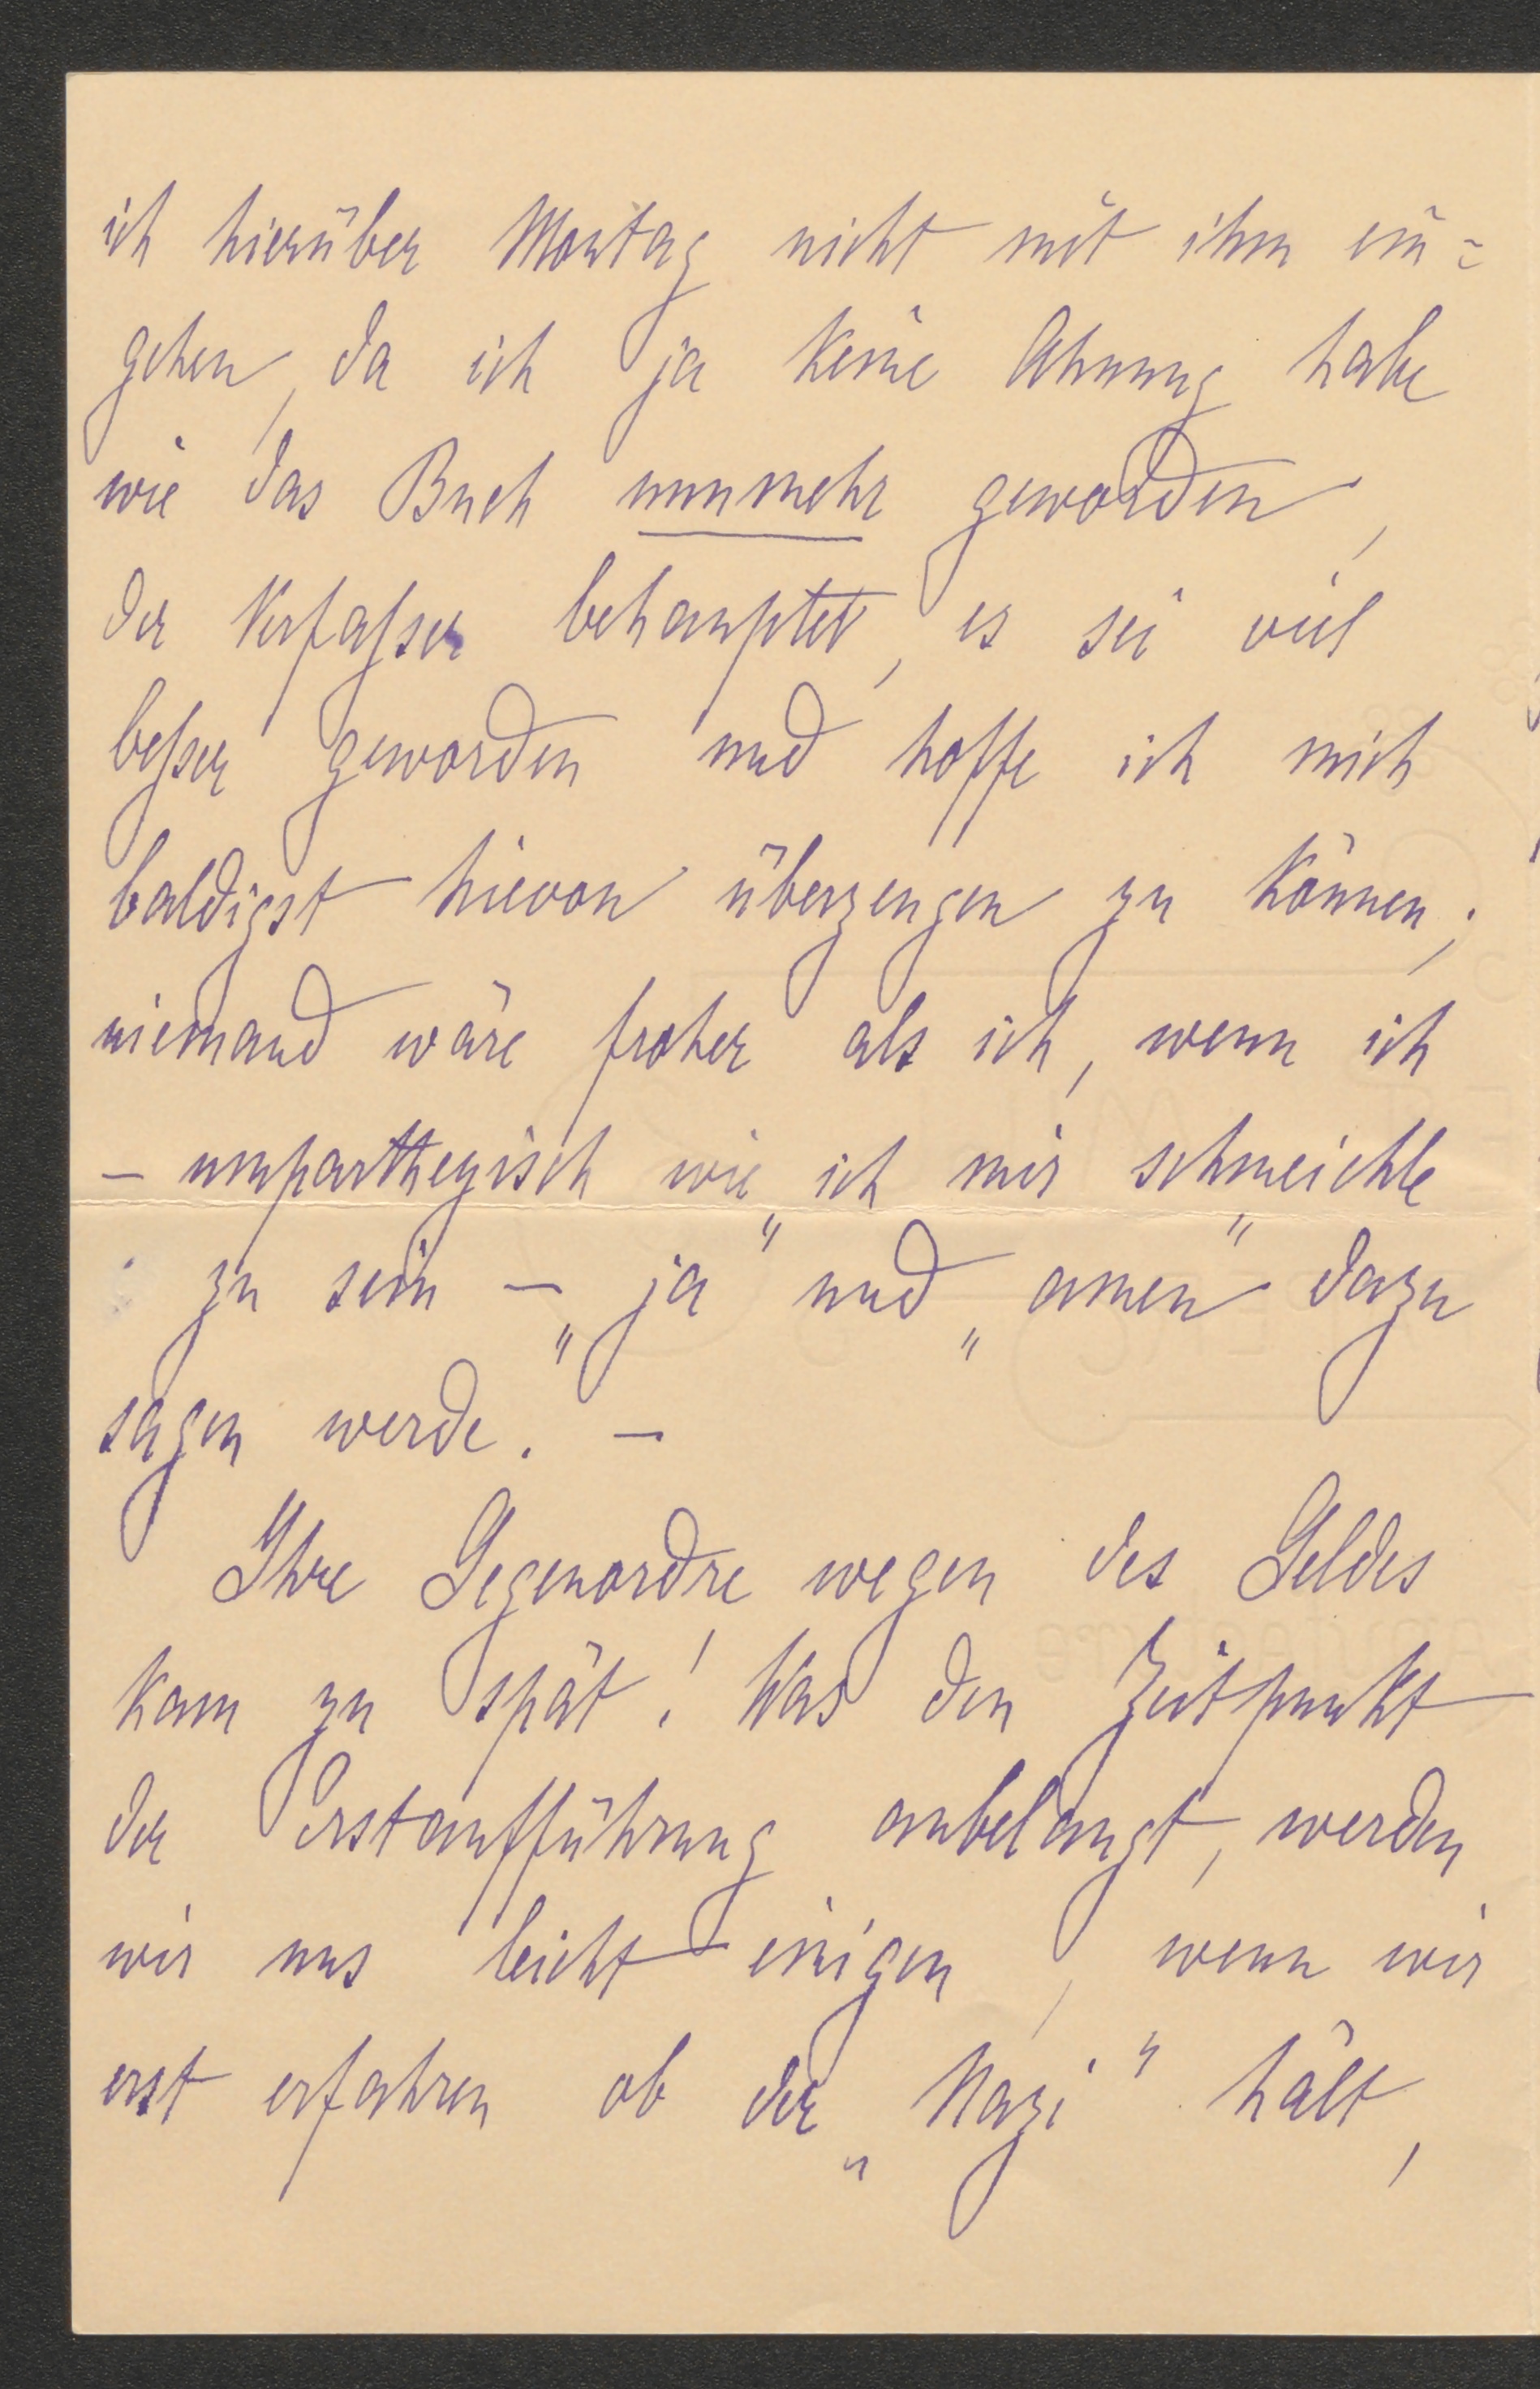 ich hierüber Montag nicht mit ihm ein=
gehen, da ich ja keine Ahnung habe
wie das Buch nunmehr geworden,
der Verfaßer behauptet, es sei viel
beßer geworden und hoffe ich mich
baldigst hievon überzeugen zu können;
niemand wäre froher als ich, wenn ich
– unpartheyisch wie ich mir schmeichle
zu sein – „ja" und „amen" dazu
sagen werde. –
Ihre Gegenordre wegen des Geldes
kam zu spät! Was den Zeitpunkt
der Erstaufführung anbelangt, werden
wir uns leicht einigen, wenn wir
erst erfahren ob der „Nazi" hält,